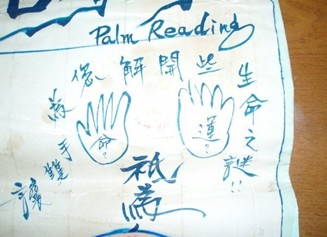 Palm Reading
讓雙手為您解開些生命之謎!!
命?
運?
祇